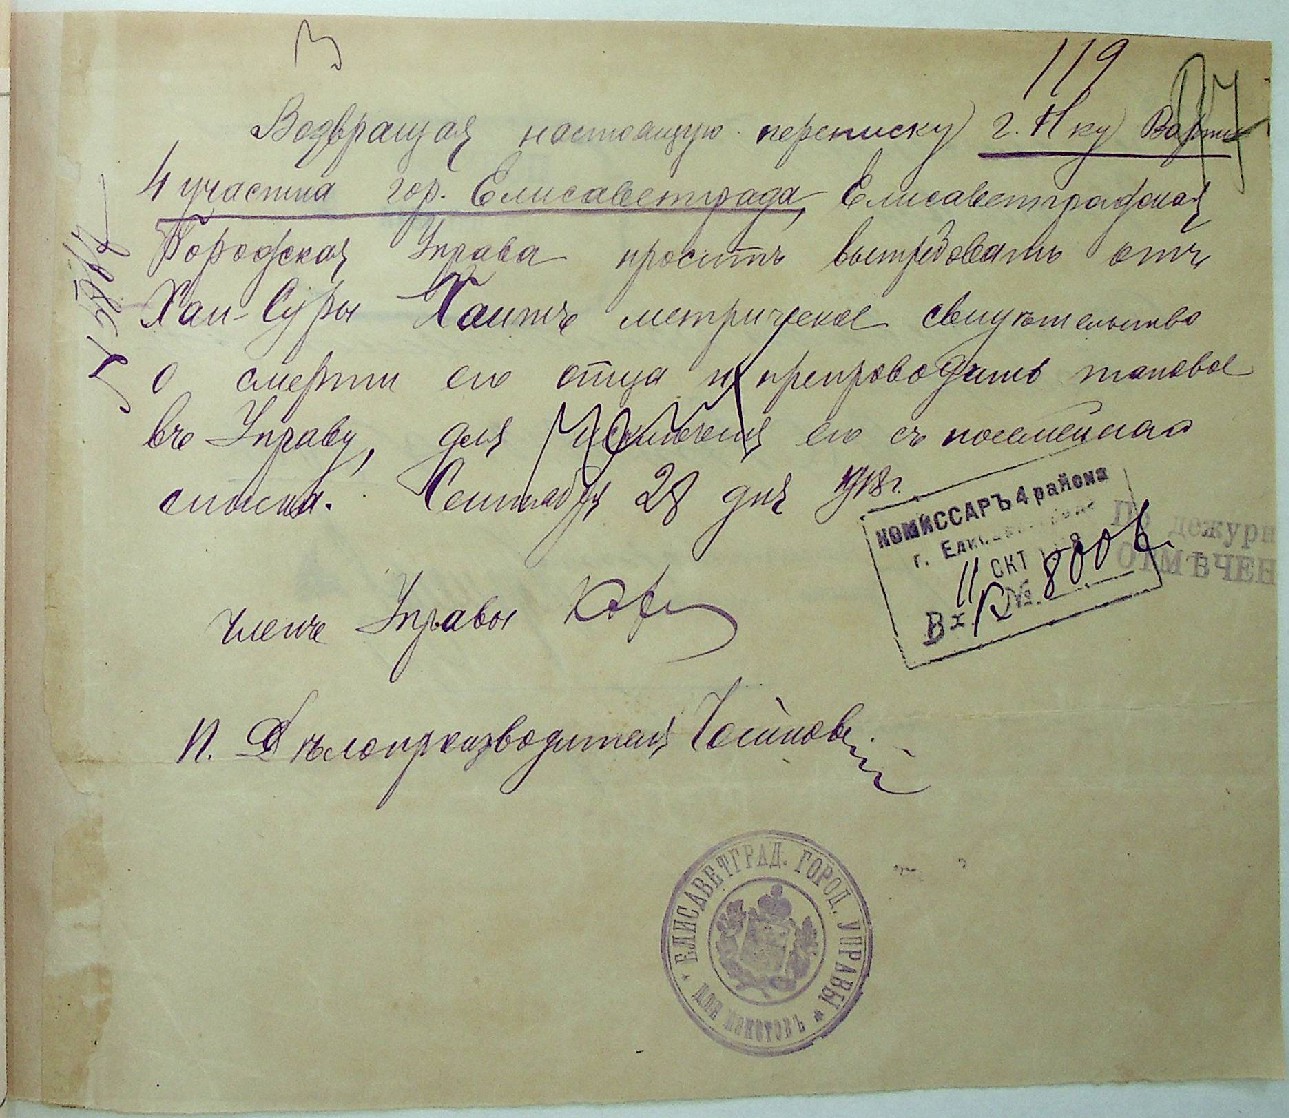 119
Возвращая настоящую переписку г. Н-ку Варты
4 участка гор. Елисаветграда, Елисаветградская
Городская Управа просить вытребовать отъ
Хаи-Суры метрическое свидѣтельство
о смерти его отца и препроводить таковое
въ Управу, для его съ посемейнаго
списка. Сентября 28 дня 1918 г.
КОМИССАРЪ 4 района
г. Елисаветграда
11 ОКТ
Вх № 8006
По дежурн
ОТМѢЧЕН
Членъ Управы
И. Дѣлопроизводителя
ЕЛИСАВЕТГРАД. ГОРОД. УПРАВЫ
ДЛЯ ПАКЕТОВЪ